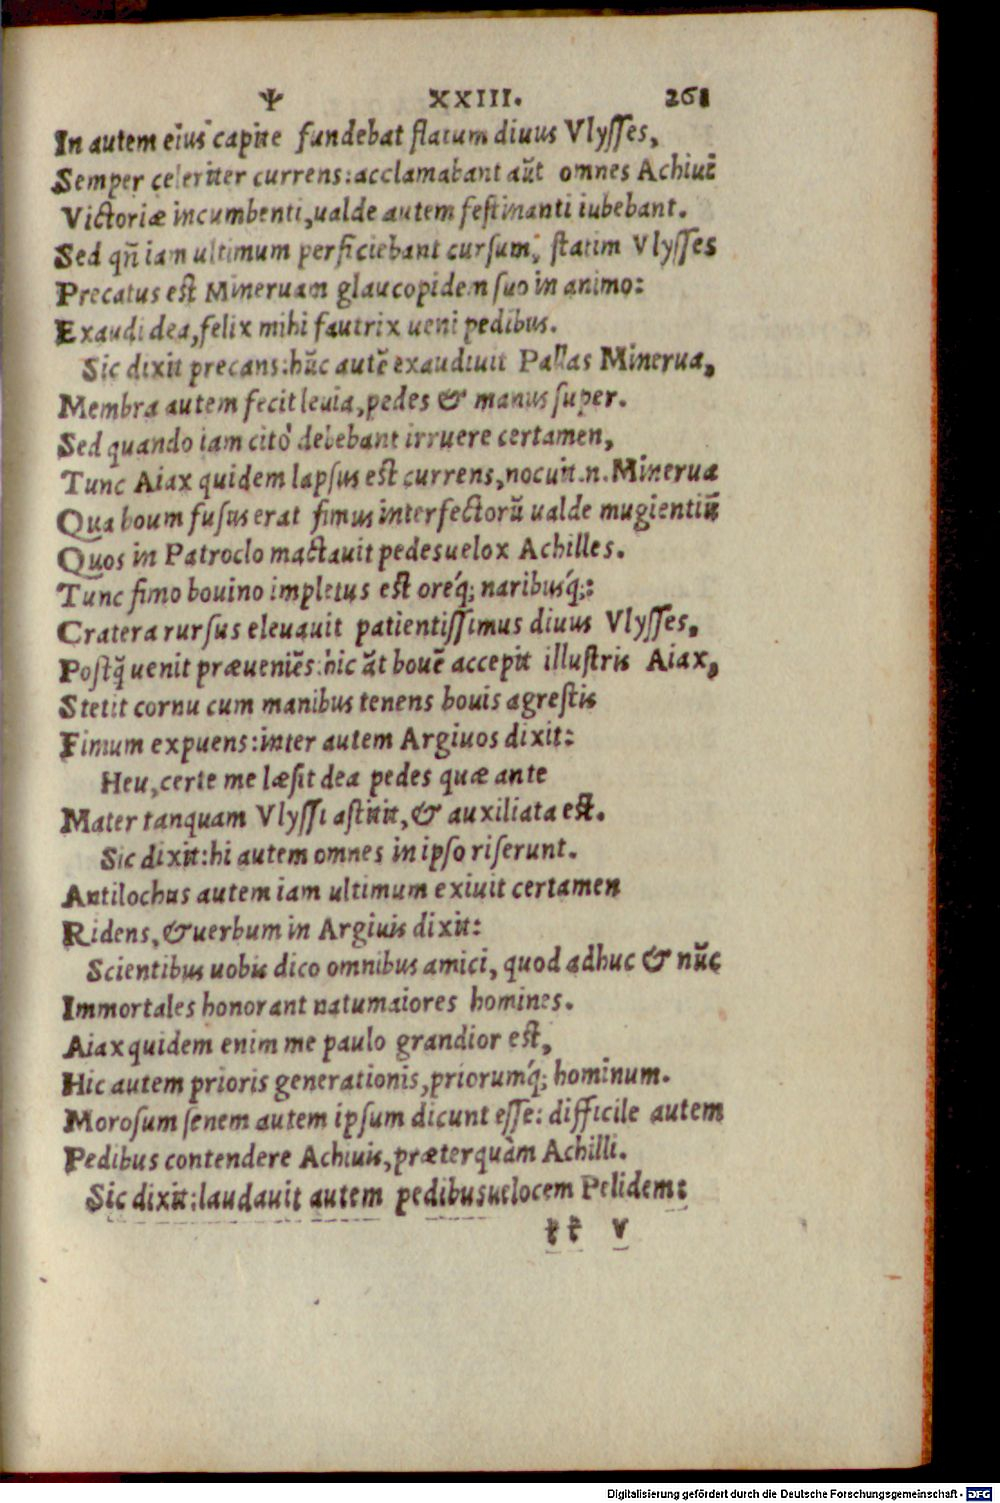 Ψ XXIII. 261
In autem eius capite fundebat flatum diuus Vlyſſes,
Semper celeriter currens: acclamabant aũt omnes Achiui
Victoriæ incumbenti, ualde autem feſtinanti iubebant.
Sed qñ iam ultimum perficiebant curſum, ſtatim Vlyſſes
Precatus eſt Mineruam glaucopidem ſuo in animo:
Exaudi dea, felix mihi fautrix ueni pedibus.
Sic dixit precans: hũc autẽ exaudiuit Pallas Minerua,
Membra autem fecit leuia, pedes & manus ſuper.
Sed quando iam citò debebant irruere certamen,
Tunc Aiax quidem lapſus eſt currens, nocuit.n. Minerua
Qua boum fuſus erat fimus interfectorũ ualde mugientiũ
Quos in Patroclo mactauit pedesuelox Achilles.
Tunc fimo bouino impletus eſt oreq́; naribusq́;:
Cratera rurſus eleuauit patientiſſimus diuus Vlyſſes,
Poſtq̃ uenit præueniẽs: hic ãt bouẽ accepit illuſtris Aiax,
Stetit cornu cum manibus tenens bouis agreſtis
Fimum expuens: inter autem Argiuos dixit:
Heu, certe me læſit dea pedes quæ ante
Mater tanquam Vlyſſi aſtitit, & auxiliata eſt.
Sic dixit: hi autem omnes in ipſo riſerunt.
Antilochus autem iam ultimum exiuit certamen
Ridens, & uerbum in Argiuis dixit:
Scientibus uobis dico omnibus amici, quod adhuc & nũc
Immortales honorant natumaiores homines.
Aiax quidem enim me paulo grandior eſt,
Hic autem prioris generationis, priorumq́; hominum.
Moroſum ſenem autem ipſum dicunt eſſe: difficile autem
Pedibus contendere Achiuis, præterquàm Achilli.
Sic dixit: laudauit autem pedibusuelocem Pelidem:
tt v
Digitalisierung gefördert durch die Deutsche Forschungsgemeinschaft - DFG